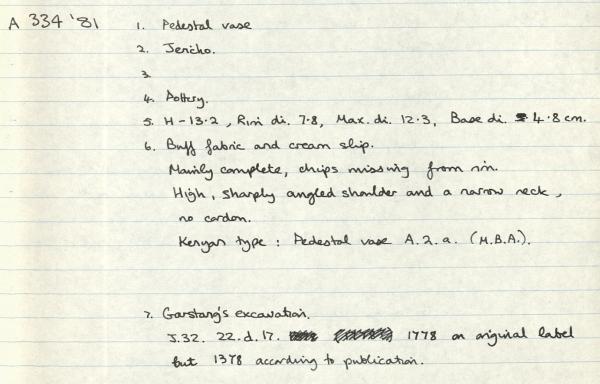 A 334 '81
1. Pedestal vase
2. Jericho.
3.
4. Pottery.
5. H - 13·2, Rim di. 7·8, Max. di. 12·3, Base di. 4·8 cm.
6. Buff fabric and cream slip.
Mainly complete, chips missing from rim.
High, sharply angled shoulder and a narrow neck,
no cordon.
Kenyon type : Pedestal vase A.2.a. (M.B.A.).
7. Garstang's excavation.
J.32. 22.d.17. 1778 on original label
but 1378 according to publication.